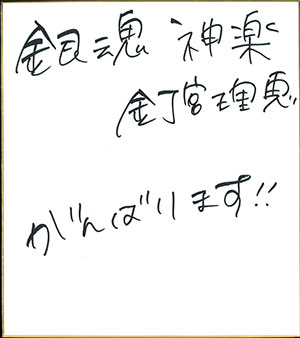 銀魂 神楽
釘宮理恵
がんばります!!